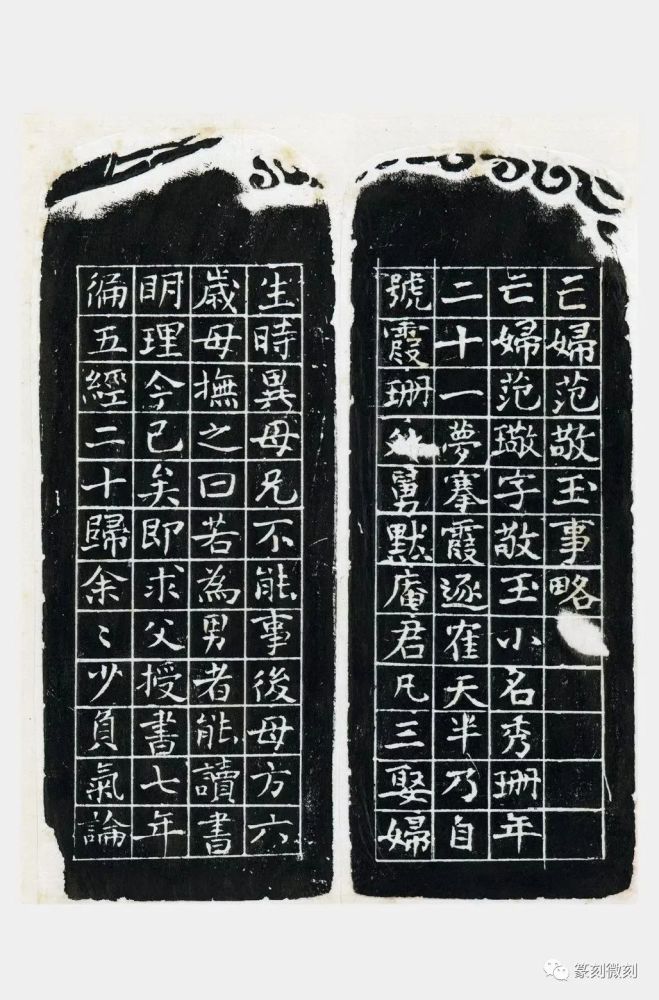 亡婦范敬玉事略
亡婦范璥字敬玉小名秀珊年
二十一夢搴霞逐隺天半乃自
號霞珊外舅默庵君凡三娶婦
生時異母兄不能事後母方六
歲母撫之曰若為男者能讀書
明理今已矣即求父授書七年
徧五經二十歸余〻少負氣論
篆刻微刻